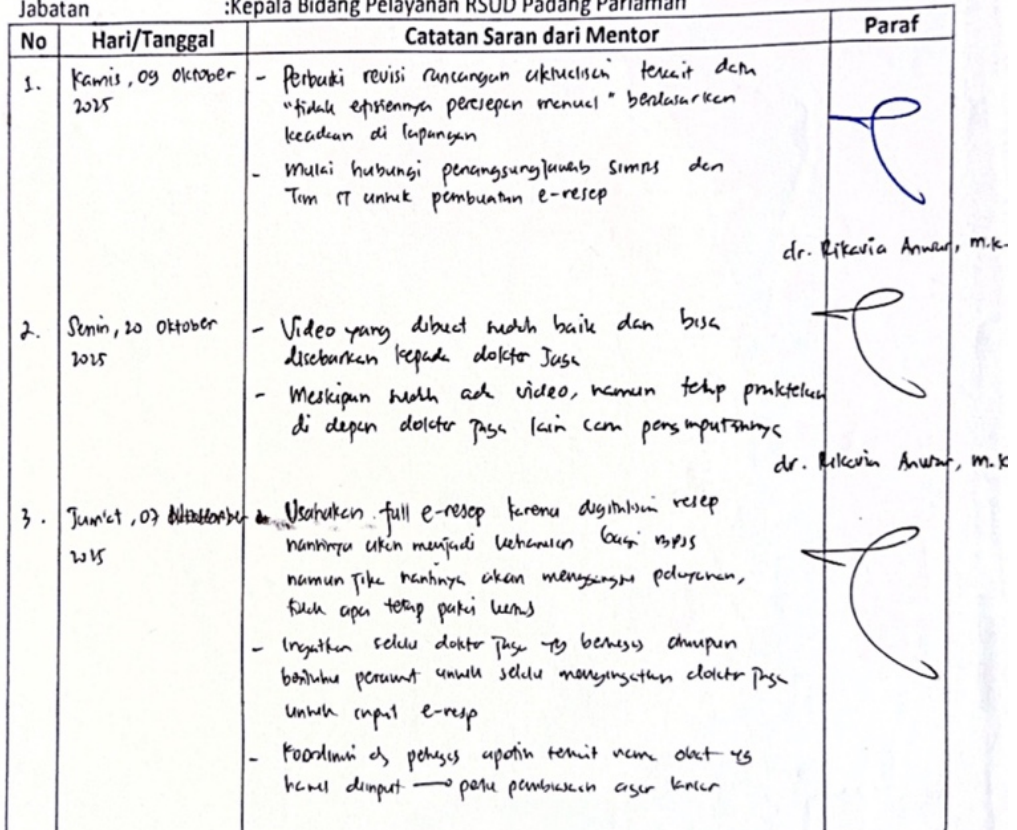 Jabatan :Kepala Bidang Pelayanan RSUD Padang Pariaman
No Hari/Tanggal Catatan Saran dari Mentor Paraf
1. Kamis, 09 Oktober 2025
- Perbaiki revisi rancangan aktualisasi terkait data
"tidak efisiennya peresepan manual" berdasarkan
keadaan di lapangan
- Mulai hubungi penanggungjawab SIMRS dan
Tim IT untuk pembuatan e-resep
dr. Rikavia Anwar, m.k.
2. Senin, 20 Oktober 2025
- Video yang dibuat sudah baik dan bisa
disebarkan kepada dokter Jaga
- Meskipun sudah ada video, namun tetap praktekan
di depan dokter Jaga lain cara penginputannya
dr. Rikavia Anwar, m.k
3. Jum'at, 07 2025
- Usahakan full e-resep karena digitalisasi resep
nantinya akan menjadi keharusan bagi BPJS
namun jika nantinya akan mengganggu pelayanan,
tidak apa tetap pakai kertas
- Ingatkan selalu dokter Jaga yg bertugas ataupun
perawat untuk selalu mengingatkan dokter Jaga
untuk input e-resep
- Koordinasi dg petugas apotik terkait nama obat yg
harus diinput → perlu pembiasaan agar lancar